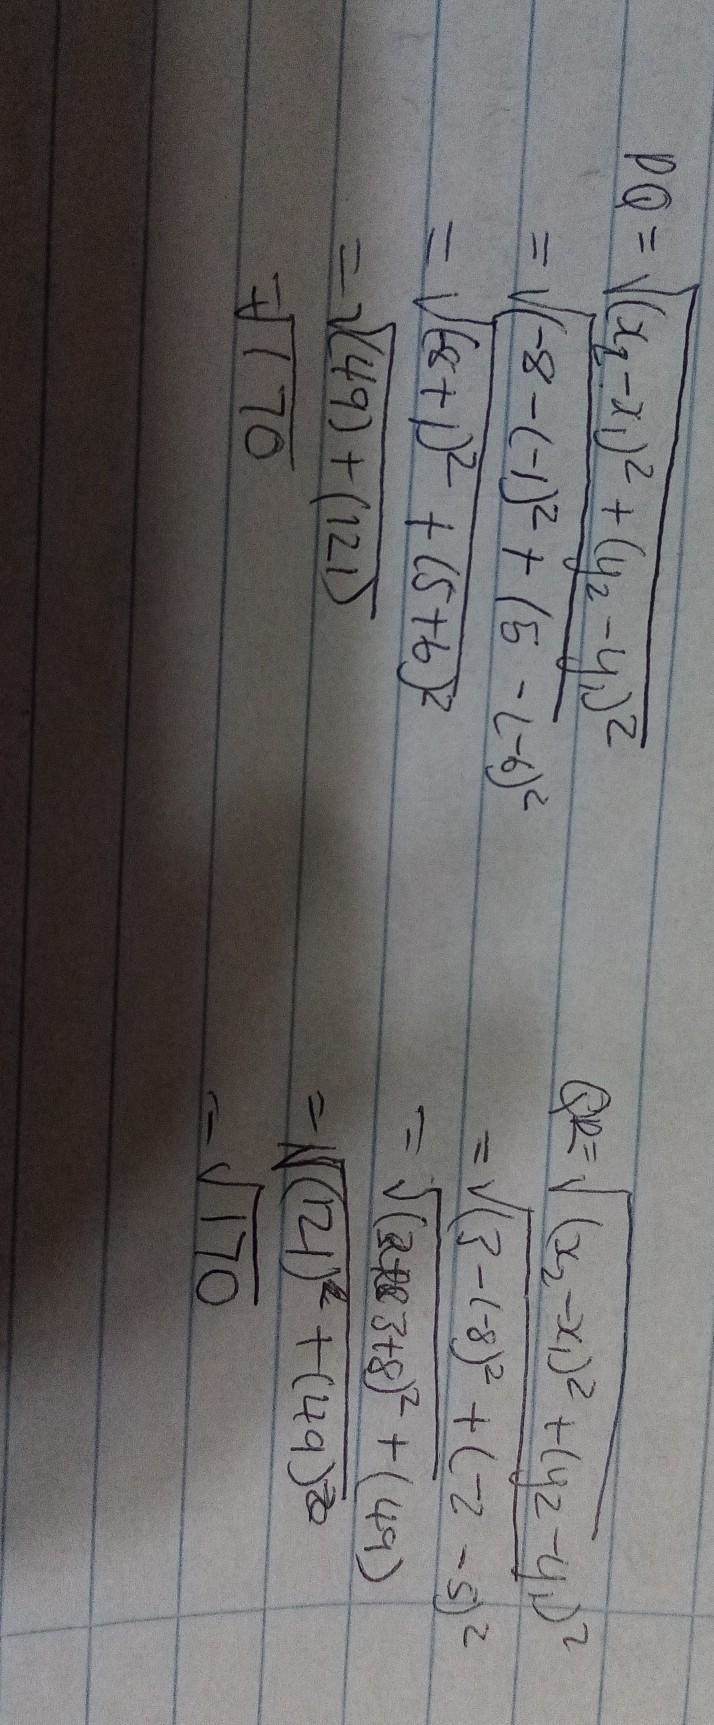 PQ = √(x₂ - x₁)² + (y₂ - y₁)²
= √(-8 - (-1)² + (5 - (-6)²
= √(-8 + 1)² + (5 + 6)²
= √(49) + (121)
= √170
QR = √(x₂ - x₁)² + (y₂ - y₁)²
= √(3 - (-8)² + (-2 - 5)²
= √(3+8)² + (49)
= √(121) + (49)
= √170